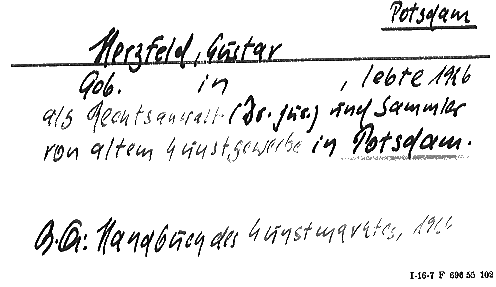 Potsdam
Herzfeld, Gustav
Geb. in , lebte 1926
als Rechtsanwalt (Dr. jur.) und Sammler
von altem Kunstgewerbe in Potsdam.
B.Qu: Handbuch des Kunstmarktes, 1926
I-16-7 F 696 55 102